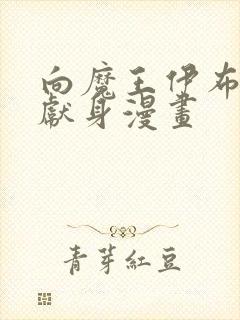 向魔王伊布
獻身漫畫
青芽紅豆